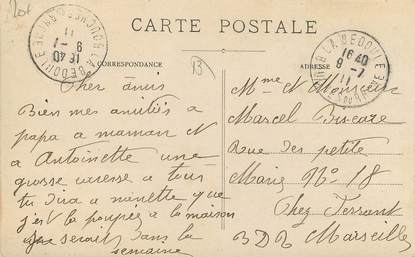 CARTE POSTALE
CORRESPONDANCE
ADRESSE
16 40
9 - 7
11
Cher amis
Bien mes amitiés à
papa a maman et
a Antoinette une
grosse caresse a tous
tu dira a ninette que
j'est la poupée a la maison
serait dans la
semaine
Mme et Monsieur
Marcel
Rue des petite
Marie No 18
Chez Ferrant
B D R Marseille